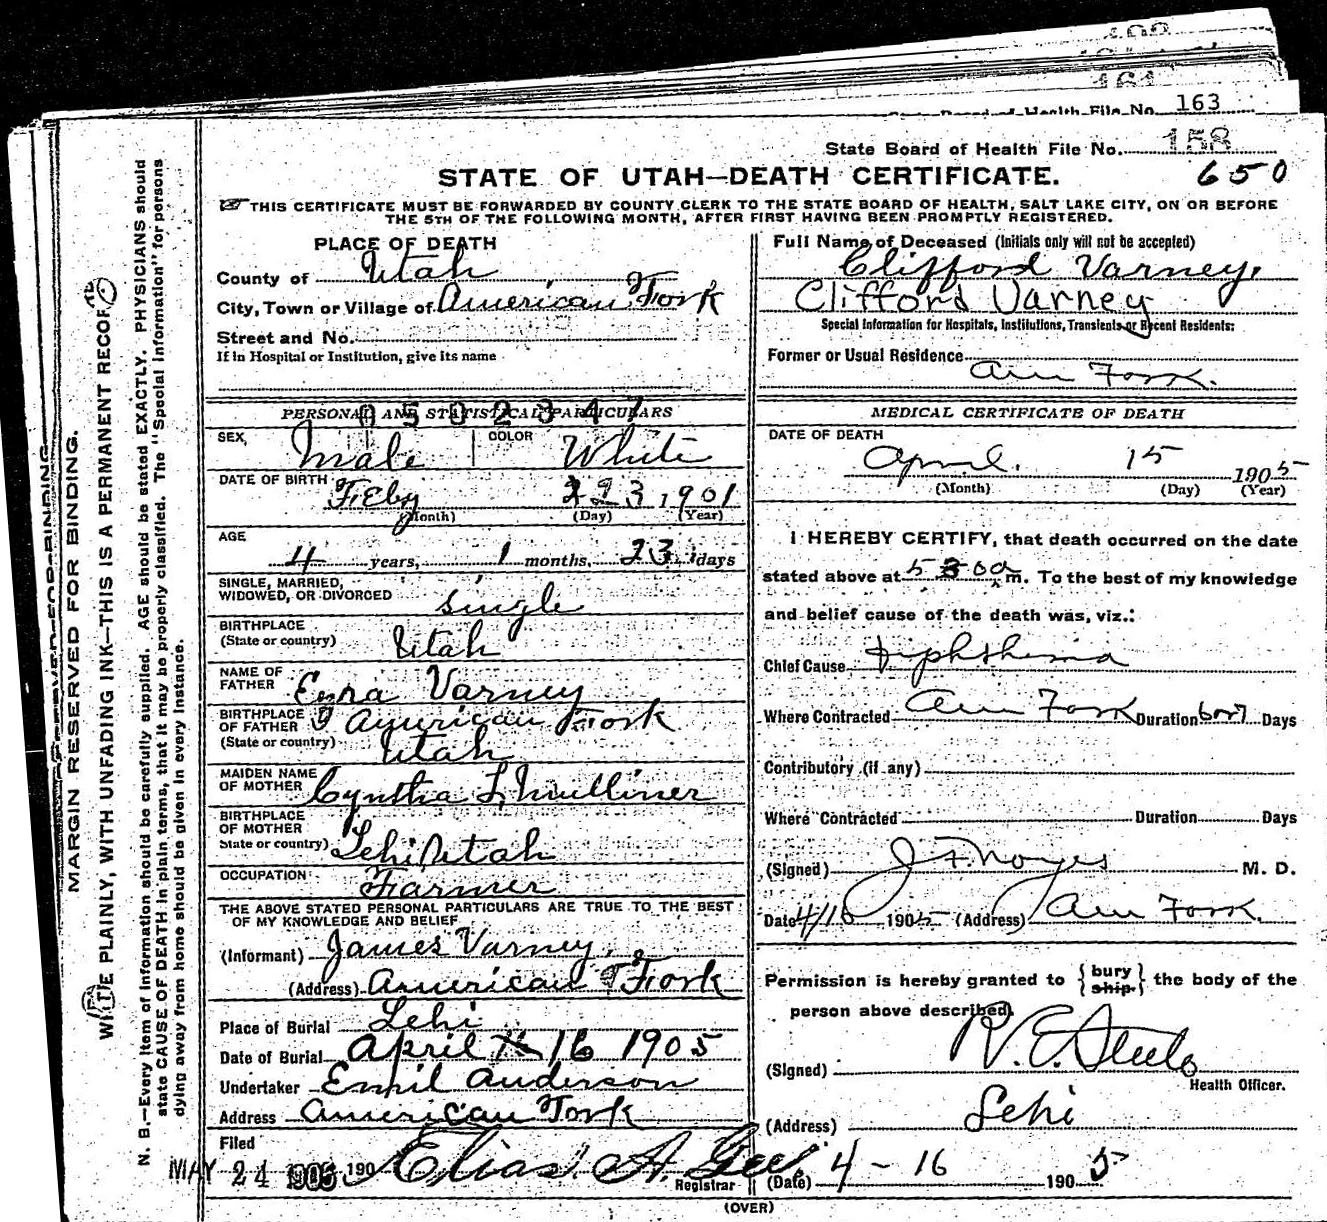 163
State Board of Health File No. 158
650
STATE OF UTAH—DEATH CERTIFICATE.
THIS CERTIFICATE MUST BE FORWARDED BY COUNTY CLERK TO THE STATE BOARD OF HEALTH, SALT LAKE CITY, ON OR BEFORE
THE 5TH OF THE FOLLOWING MONTH, AFTER FIRST HAVING BEEN PROMPTLY REGISTERED.
MARGIN RESERVED FOR BINDING.
WRITE PLAINLY, WITH UNFADING INK—THIS IS A PERMANENT RECORD
N. B.—Every item of information should be carefully supplied. AGE should be stated EXACTLY. PHYSICIANS should
state CAUSE OF DEATH in plain terms, that it may be properly classified. The "Special Information" for persons
dying away from home should be given in every instance.
PLACE OF DEATH
County of Utah
City, Town or Village of American Fork
Street and No.
If in Hospital or Institution, give its name
PERSONAL AND STATISTICAL PARTICULARS
0502347
SEX, Male COLOR White
DATE OF BIRTH Feby 23, 1901
(Month) (Day) (Year)
AGE
4 years, 1 months, 23 days
SINGLE, MARRIED,
WIDOWED, OR DIVORCED single
BIRTHPLACE
(State or country) Utah
NAME OF
FATHER Ezra Varney
BIRTHPLACE
OF FATHER American Fork
(State or country) Utah
MAIDEN NAME
OF MOTHER Cyntha L, Mulliner
BIRTHPLACE
OF MOTHER
State or country) Lehi Utah
OCCUPATION Farmer
THE ABOVE STATED PERSONAL PARTICULARS ARE TRUE TO THE BEST
OF MY KNOWLEDGE AND BELIEF
(Informant) James Varney,
(Address) American Fork
Place of Burial Lehi
Date of Burial April 16 1905
Undertaker Emil Anderson
Address American Fork
Filed
MAY 24 1905 190 Elias A. Gee
Registrar
Full Name of Deceased (Initials only will not be accepted)
Clifford Varney,
Clifford Varney
Special Information for Hospitals, Institutions, Transients or Recent Residents:
Former or Usual Residence
Am Fork.
MEDICAL CERTIFICATE OF DEATH
DATE OF DEATH
April. 15 1905
(Month) (Day) (Year)
I HEREBY CERTIFY, that death occurred on the date
stated above at 5 00 a m. To the best of my knowledge
and belief cause of the death was, viz.:
Chief Cause Diphtheria
Where Contracted Am Fork Duration 6 or 7 Days
Contributory (if any)
Where Contracted Duration Days
(Signed) J F. Noyes M. D.
Date 4/16 1905 (Address) Am Fork.
Permission is hereby granted to { bury ship } the body of the
person above described.
(Signed) R. E. Steele
Health Officer.
(Address) Lehi
(Date) 4 - 16 1905
(OVER)